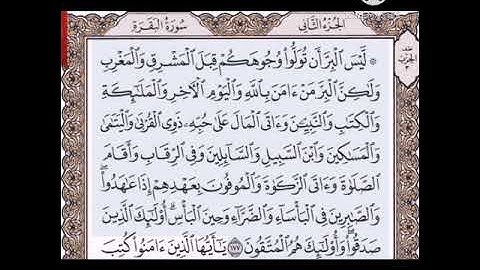 الجزء الثاني
سورة البقرة
۞ لَيْسَ الْبِرَّ أَن تُوَلُّوا۟ وُجُوهَكُمْ قِبَلَ الْمَشْرِقِ وَالْمَغْرِبِ
وَلَٰكِنَّ الْبِرَّ مَنْ ءَامَنَ بِاللَّهِ وَالْيَوْمِ الْءَاخِرِ وَالْمَلَٰٓئِكَةِ
وَالْكِتَٰبِ وَالنَّبِيِّۦنَ وَءَاتَى الْمَالَ عَلَىٰ حُبِّهِۦ ذَوِى الْقُرْبَىٰ وَالْيَتَٰمَىٰ
وَالْمَسَٰكِينَ وَابْنَ السَّبِيلِ وَالسَّآئِلِينَ وَفِى الرِّقَابِ وَأَقَامَ
الصَّلَوٰةَ وَءَاتَى الزَّكَوٰةَ وَالْمُوفُونَ بِعَهْدِهِمْ إِذَا عَٰهَدُوا۟ۖ
وَالصَّٰبِرِينَ فِى الْبَأْسَآءِ وَالضَّرَّآءِ وَحِينَ الْبَأْسِۗ أُو۟لَٰٓئِكَ الَّذِينَ
صَدَقُوا۟ۖ وَأُو۟لَٰٓئِكَ هُمُ الْمُتَّقُونَ ١٧٧ يَٰٓأَيُّهَا الَّذِينَ ءَامَنُوا۟ كُتِبَ